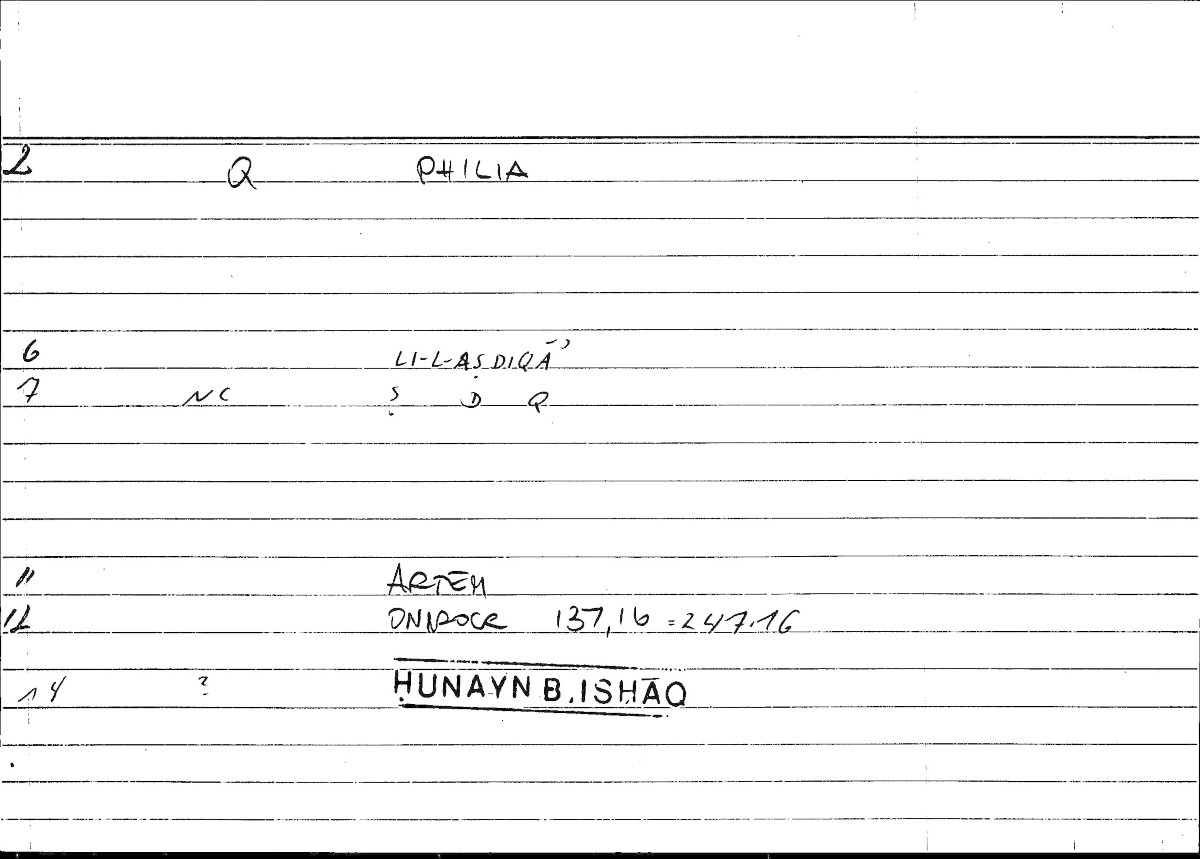 2 Q PHILIA
6 LI-L-AṢDIQĀʾ
7 NC Ṣ D Q
11 ARTEM
12 ONIROCR 137,16 = 247.16
14 ? ḤUNAYN B. ISḤĀQ